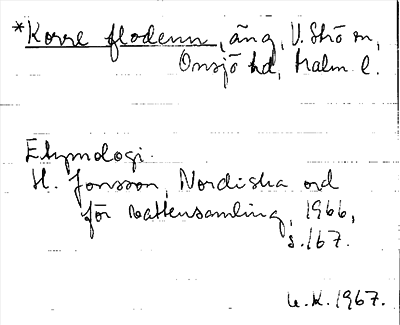 *Korre flodenn, äng, V. Strö sn,
Onsjö hd, Malm. l.
Etymologi.
H. Jonsson, Nordiska ord
för vattensamling, 1966,
s. 167.
U.K. 1967.